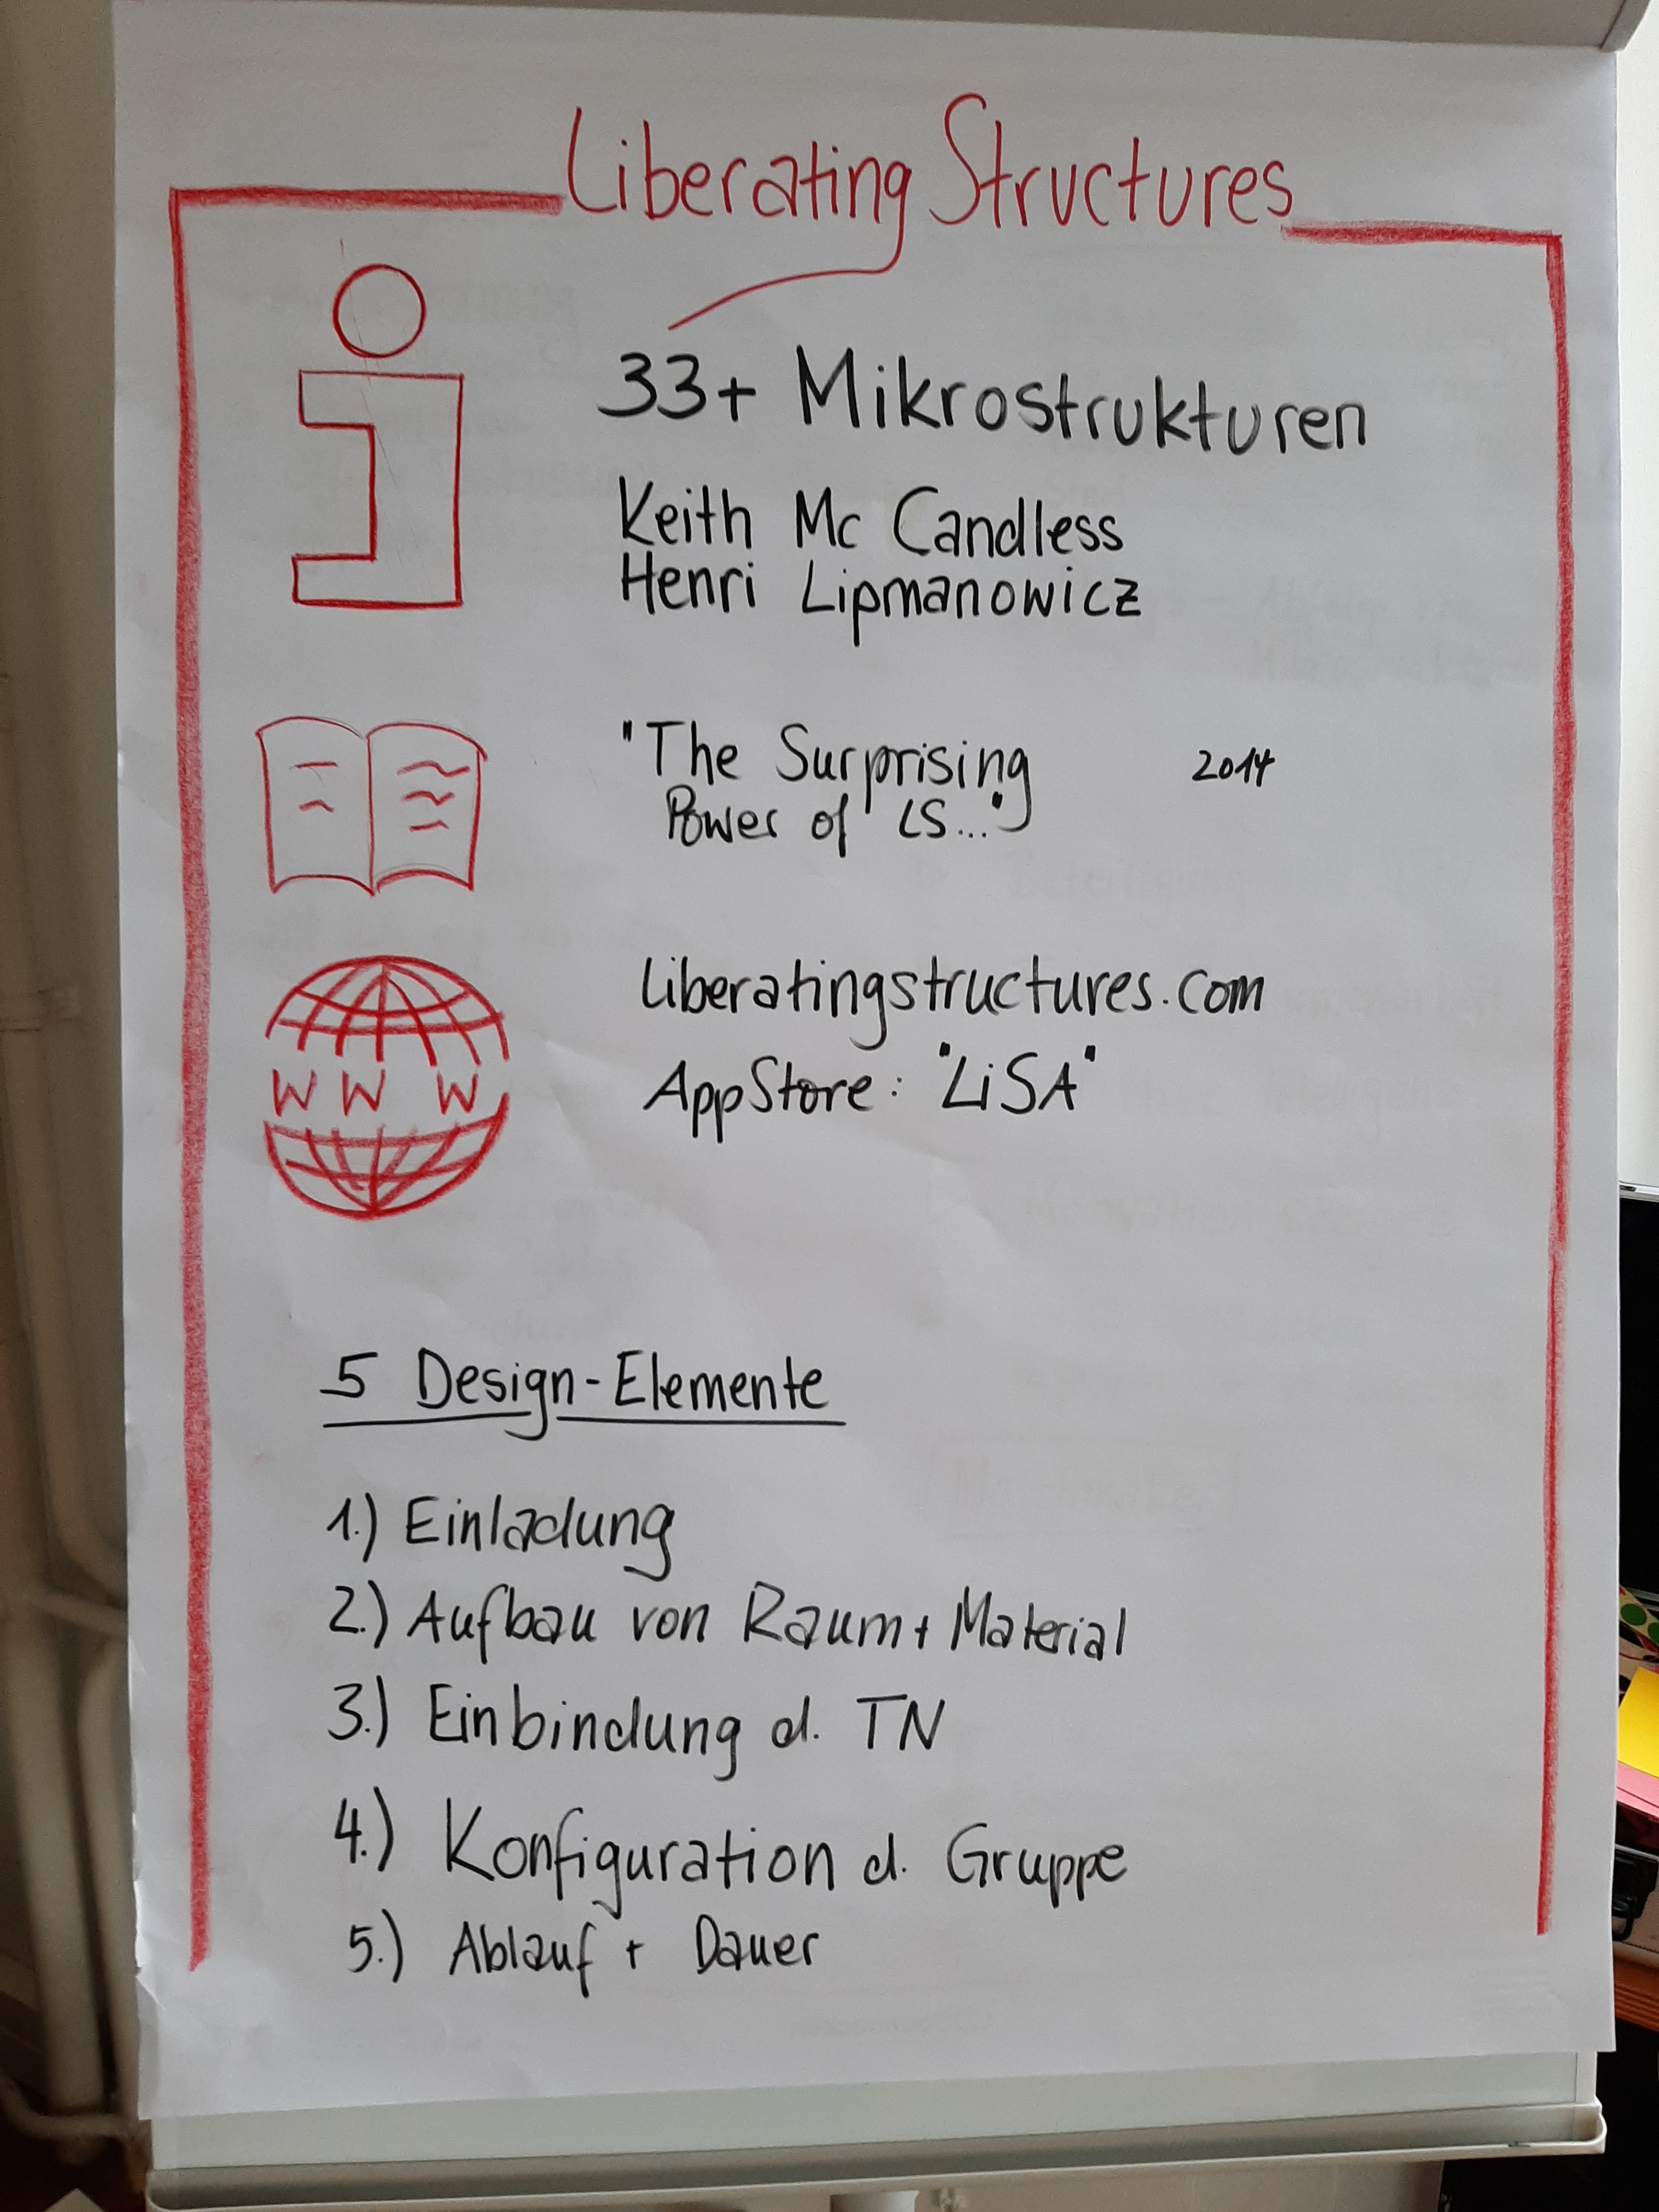 Liberating Structures
33+ Mikrostrukturen
Keith Mc Candless
Henri Lipmanowicz
"The Surprising
Power of LS..."
2014
WWW
liberatingstructures.com
AppStore: "LiSA"
5 Design-Elemente
1.) Einladung
2.) Aufbau von Raum + Material
3.) Einbindung d. TN
4.) Konfiguration d. Gruppe
5.) Ablauf + Dauer